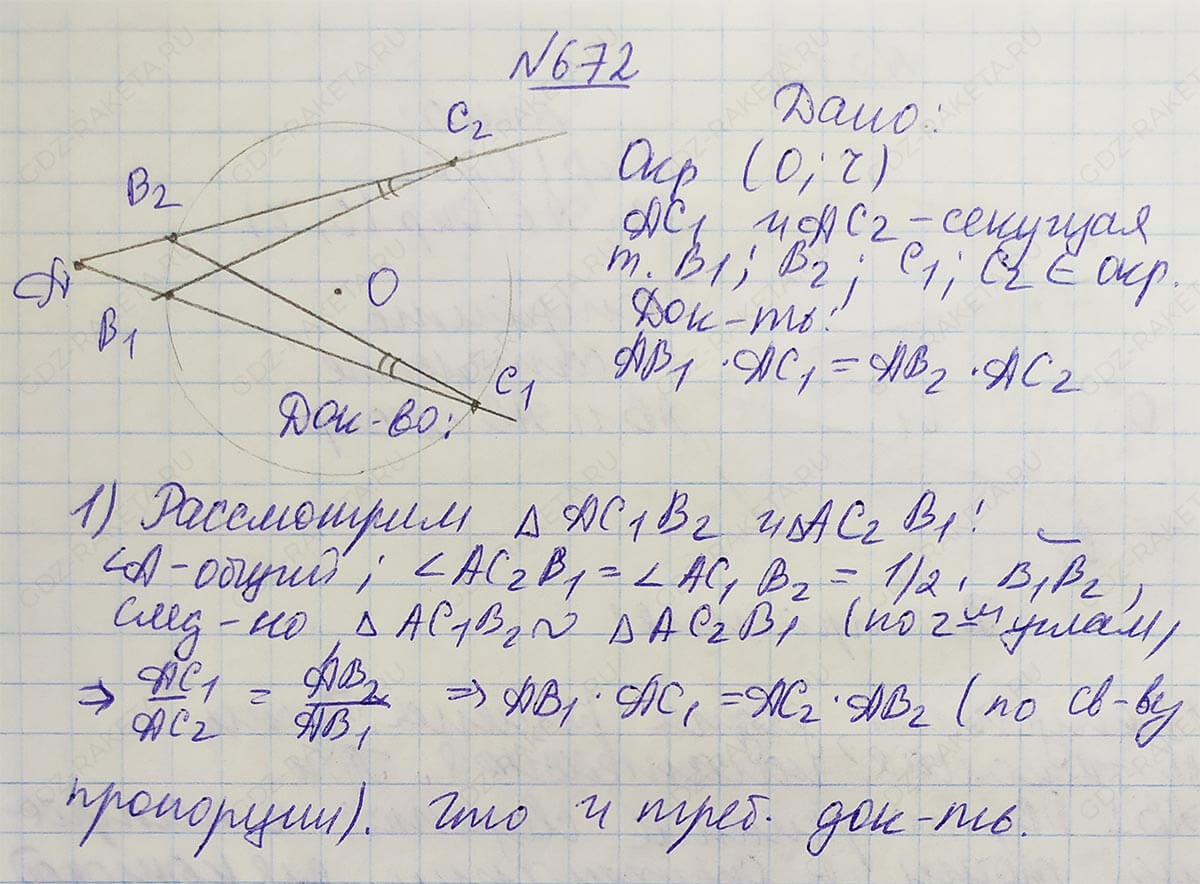 №672
Дано:
Окр (O; r)
AC1 и AC2 – секущая
т. B1; B2; C1; C2 ∈ окр.
Док-ть:
AB1 · AC1 = AB2 · AC2
C2
B2
A
O
B1
C1
Док-во:
1) Рассмотрим △ AC1B2 и △AC2B1:
∠A – общий; ∠AC2B1 = ∠AC1B2 = 1/2 ◡B1B2,
след-но △ AC1B2 ~ △AC2B1 (по 2-м углам)
⇒ AC1/AC2 = AB2/AB1 ⇒ AB1 · AC1 = AC2 · AB2 (по св-ву
пропорции). Что и треб. док-ть.
GDZ-RAKETA.RU